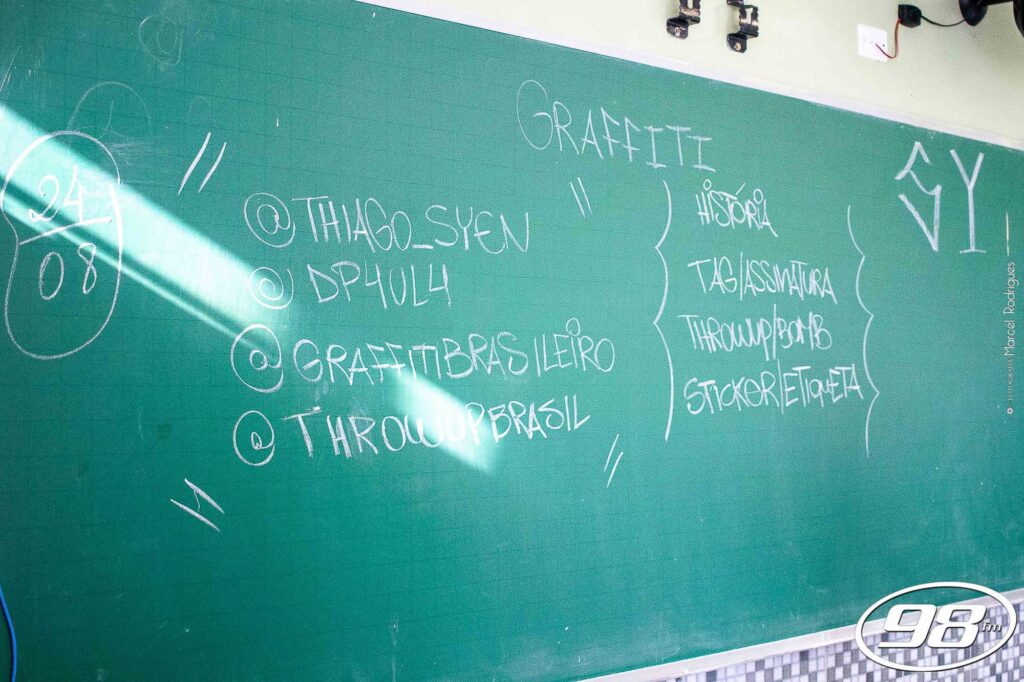 GRAFFITI
24
08
@THIAGO_SYEN
@DP4UL4
@GRAFFITIBRASILEIRO
@THROWUPBRASIL
HISTÓRIA
TAG/ASSINATURA
THROWUP/BOMB
STICKER/ETIQUETA
SY
Marcel Rodrigues
98 fm